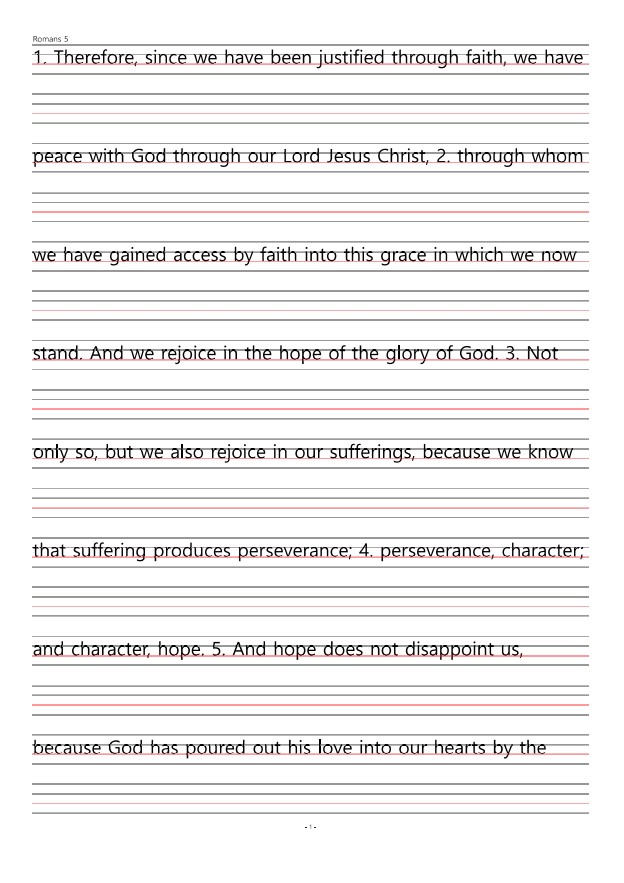 Romans 5
1. Therefore, since we have been justified through faith, we have
peace with God through our Lord Jesus Christ, 2. through whom
we have gained access by faith into this grace in which we now
stand. And we rejoice in the hope of the glory of God. 3. Not
only so, but we also rejoice in our sufferings, because we know
that suffering produces perseverance; 4. perseverance, character;
and character, hope. 5. And hope does not disappoint us,
because God has poured out his love into our hearts by the
- 1 -